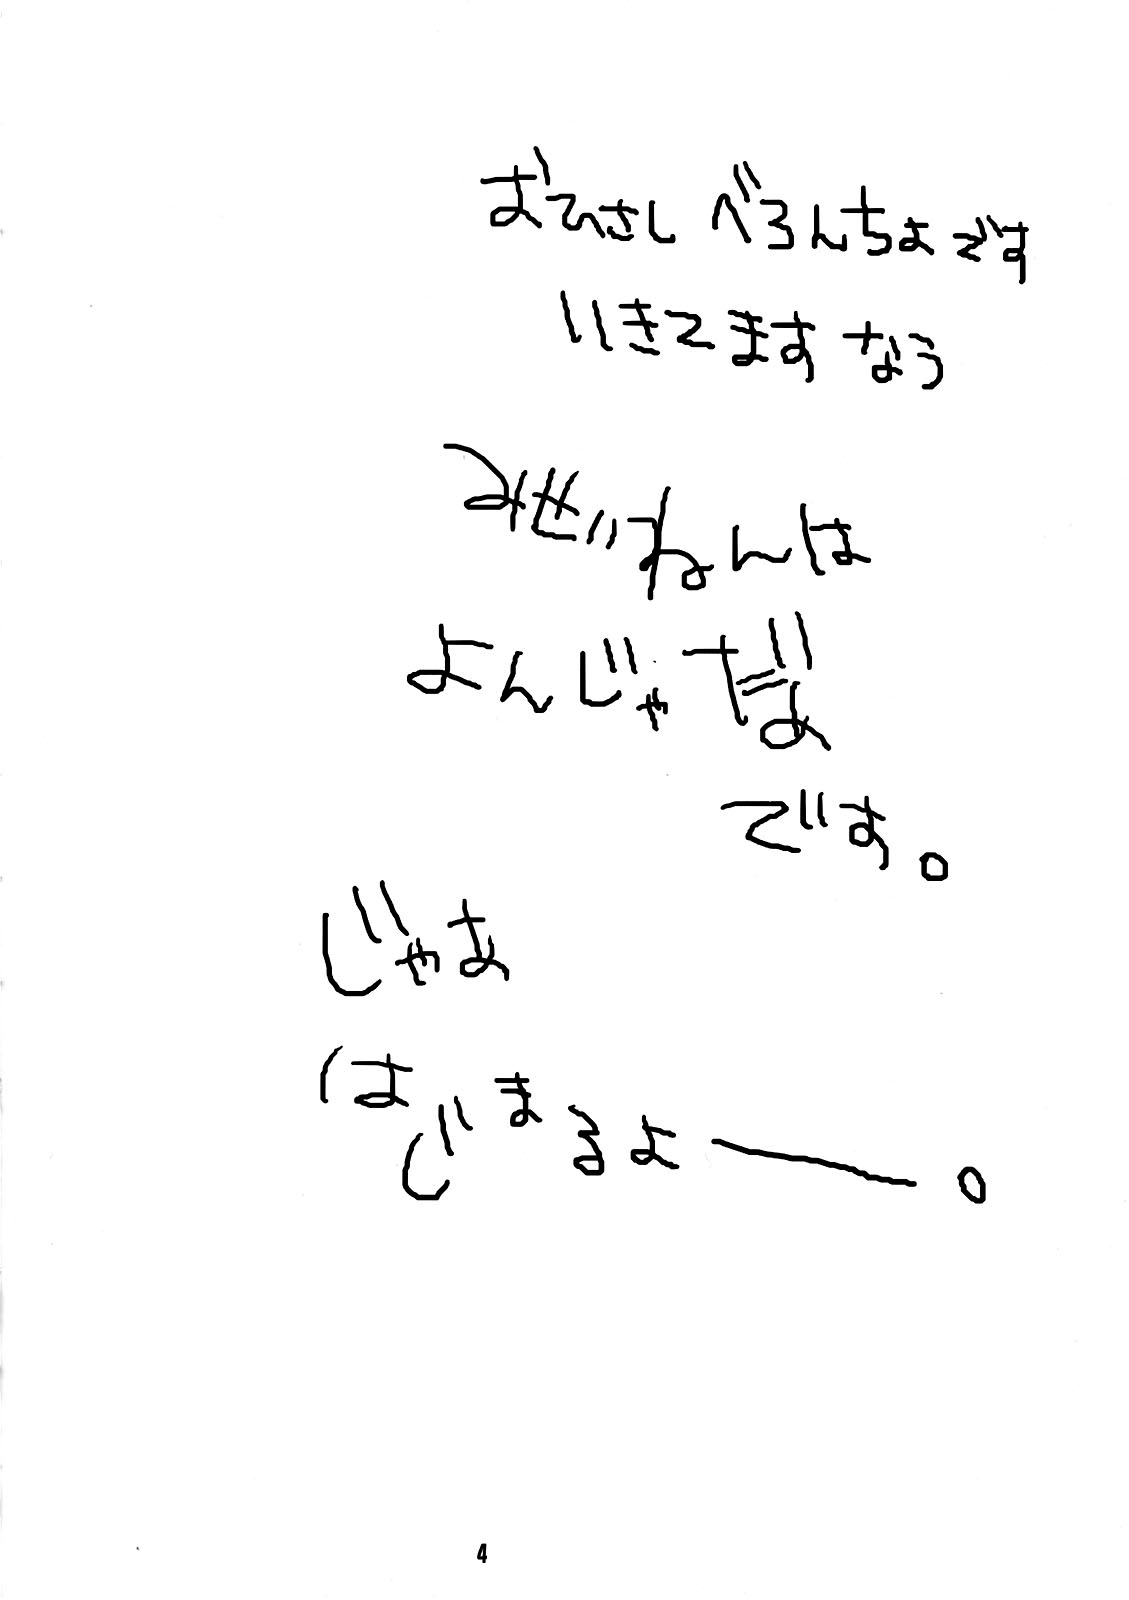 おひさし べろんちょです
いきてます なう
みせいねんは
よんじゃだめ
です。
じゃあ
はじまるよー。
4